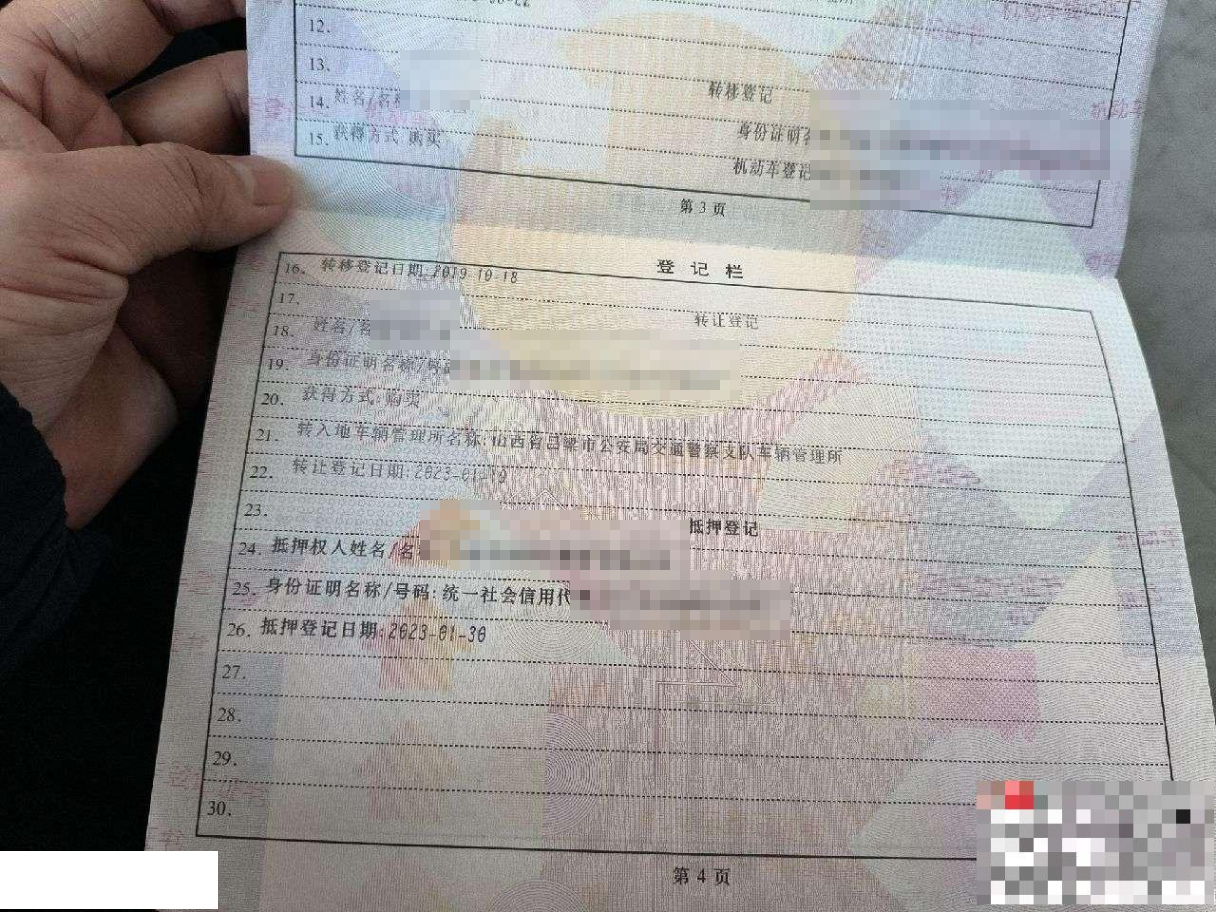 12.
13.
转移登记
14. 姓名/名称
身份证明名
15. 获得方式 购买
机动车登记
第 3 页
登 记 栏
16. 转移登记日期:2019-10-18
17.
转让登记
18. 姓名/名
19. 身份证明名称/号码
20. 获得方式:购买
21. 转入地车辆管理所名称:山西省吕梁市公安局交通警察支队车辆管理所
22. 转让登记日期:2023-01-19
23.
抵押登记
24. 抵押权人姓名/名
25. 身份证明名称/号码:统一社会信用代
26. 抵押登记日期:2023-01-30
27.
28.
29.
30.
第 4 页